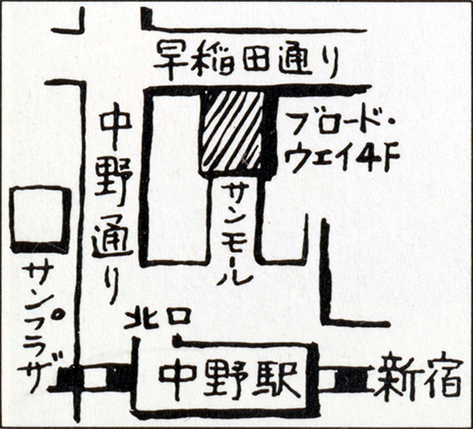 早稲田通り
中野通り
ブロード・
ウェイ4F
サンモール
サンプラザ
北口
中野駅
新宿